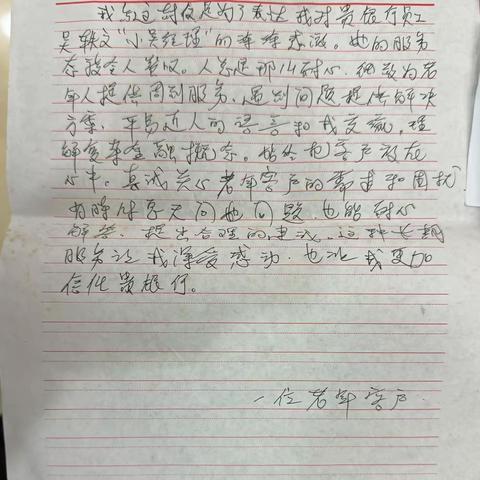 我写这封信是为了表达我对贵银行员工
吴轶文“小吴经理”的 感谢。她的服务
态度令人赞叹。人总是那么耐心、细致为老
年人提供周到服务，遇到问题提供解决
方案，平易近人的语言和我交流，理
解复杂金融概念。始终把客户放在
心中，真诚关心老年客户的需求和困扰，
有时 天问她问题，也能耐心
解答，提出合理的建议，这种长期
服务让我深受感动，也让我更加
信任贵银行。
一位老年客户